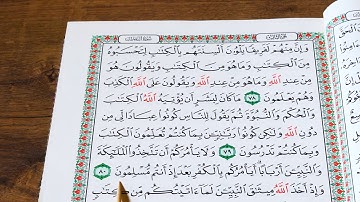 وَإِنَّ مِنْهُمْ لَفَرِيقًا يَلْوُونَ أَلْسِنَتَهُم بِالْكِتَابِ لِتَحْسَبُوهُ
مِنَ الْكِتَابِ وَمَا هُوَ مِنَ الْكِتَابِ وَيَقُولُونَ هُوَ
مِنْ عِندِ اللَّهِ وَمَا هُوَ مِنْ عِندِ اللَّهِ وَيَقُولُونَ عَلَى اللَّهِ الْكَذِبَ
وَهُمْ يَعْلَمُونَ ٧٨ مَا كَانَ لِبَشَرٍ أَن يُؤْتِيَهُ اللَّهُ الْكِتَابَ
وَالْحُكْمَ وَالنُّبُوَّةَ ثُمَّ يَقُولَ لِلنَّاسِ كُونُوا عِبَادًا لِّي مِن
دُونِ اللَّهِ وَلَٰكِن كُونُوا رَبَّانِيِّينَ بِمَا كُنتُمْ تُعَلِّمُونَ الْكِتَابَ
وَبِمَا كُنتُمْ تَدْرُسُونَ ٧٩ وَلَا يَأْمُرَكُمْ أَن تَتَّخِذُوا الْمَلَائِكَةَ
وَالنَّبِيِّينَ أَرْبَابًا أَيَأْمُرُكُم بِالْكُفْرِ بَعْدَ إِذْ أَنتُم مُّسْلِمُونَ ٨٠
وَإِذْ أَخَذَ اللَّهُ مِيثَاقَ النَّبِيِّينَ لَمَا آتَيْتُكُم مِّن كِتَابٍ